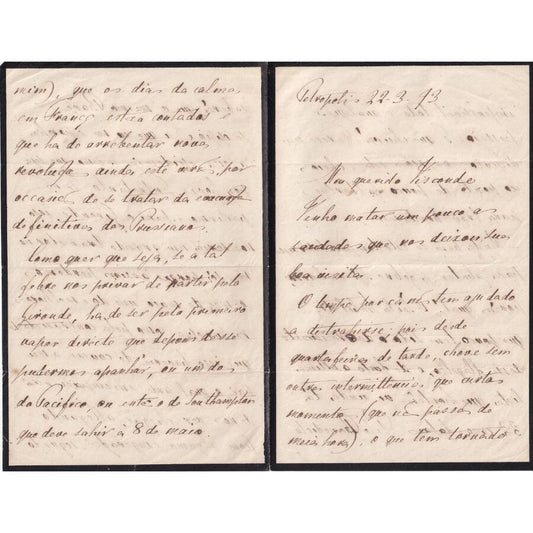 Petropolis 22-3-73
Meu querido Visconde
Venho matar um pouco as
saudades que nos deixou sua
boa visita
O tempo por cá não tem ajudado
a distrahirse, pois desde
quarta feira de tarde, chove sem
outras intermittencias que curtos
momentos (que não passão de
meia hora), o que tem tornado
mim), que os dias da calma
em França estão contados
que ha de arrebentar nova
revolução ainda este por
occasião de se tratar da
definitiva dos Prussianos.
Como quer que seja, se a tal
febre nos privar de partir pela
Gironde, ha de ser pelo primeiro
vapor directo que depois disso
pudermos apanhar, ou um dos
do Pacifico, ou então o de Southampton
que deve sahir á 8 de maio.